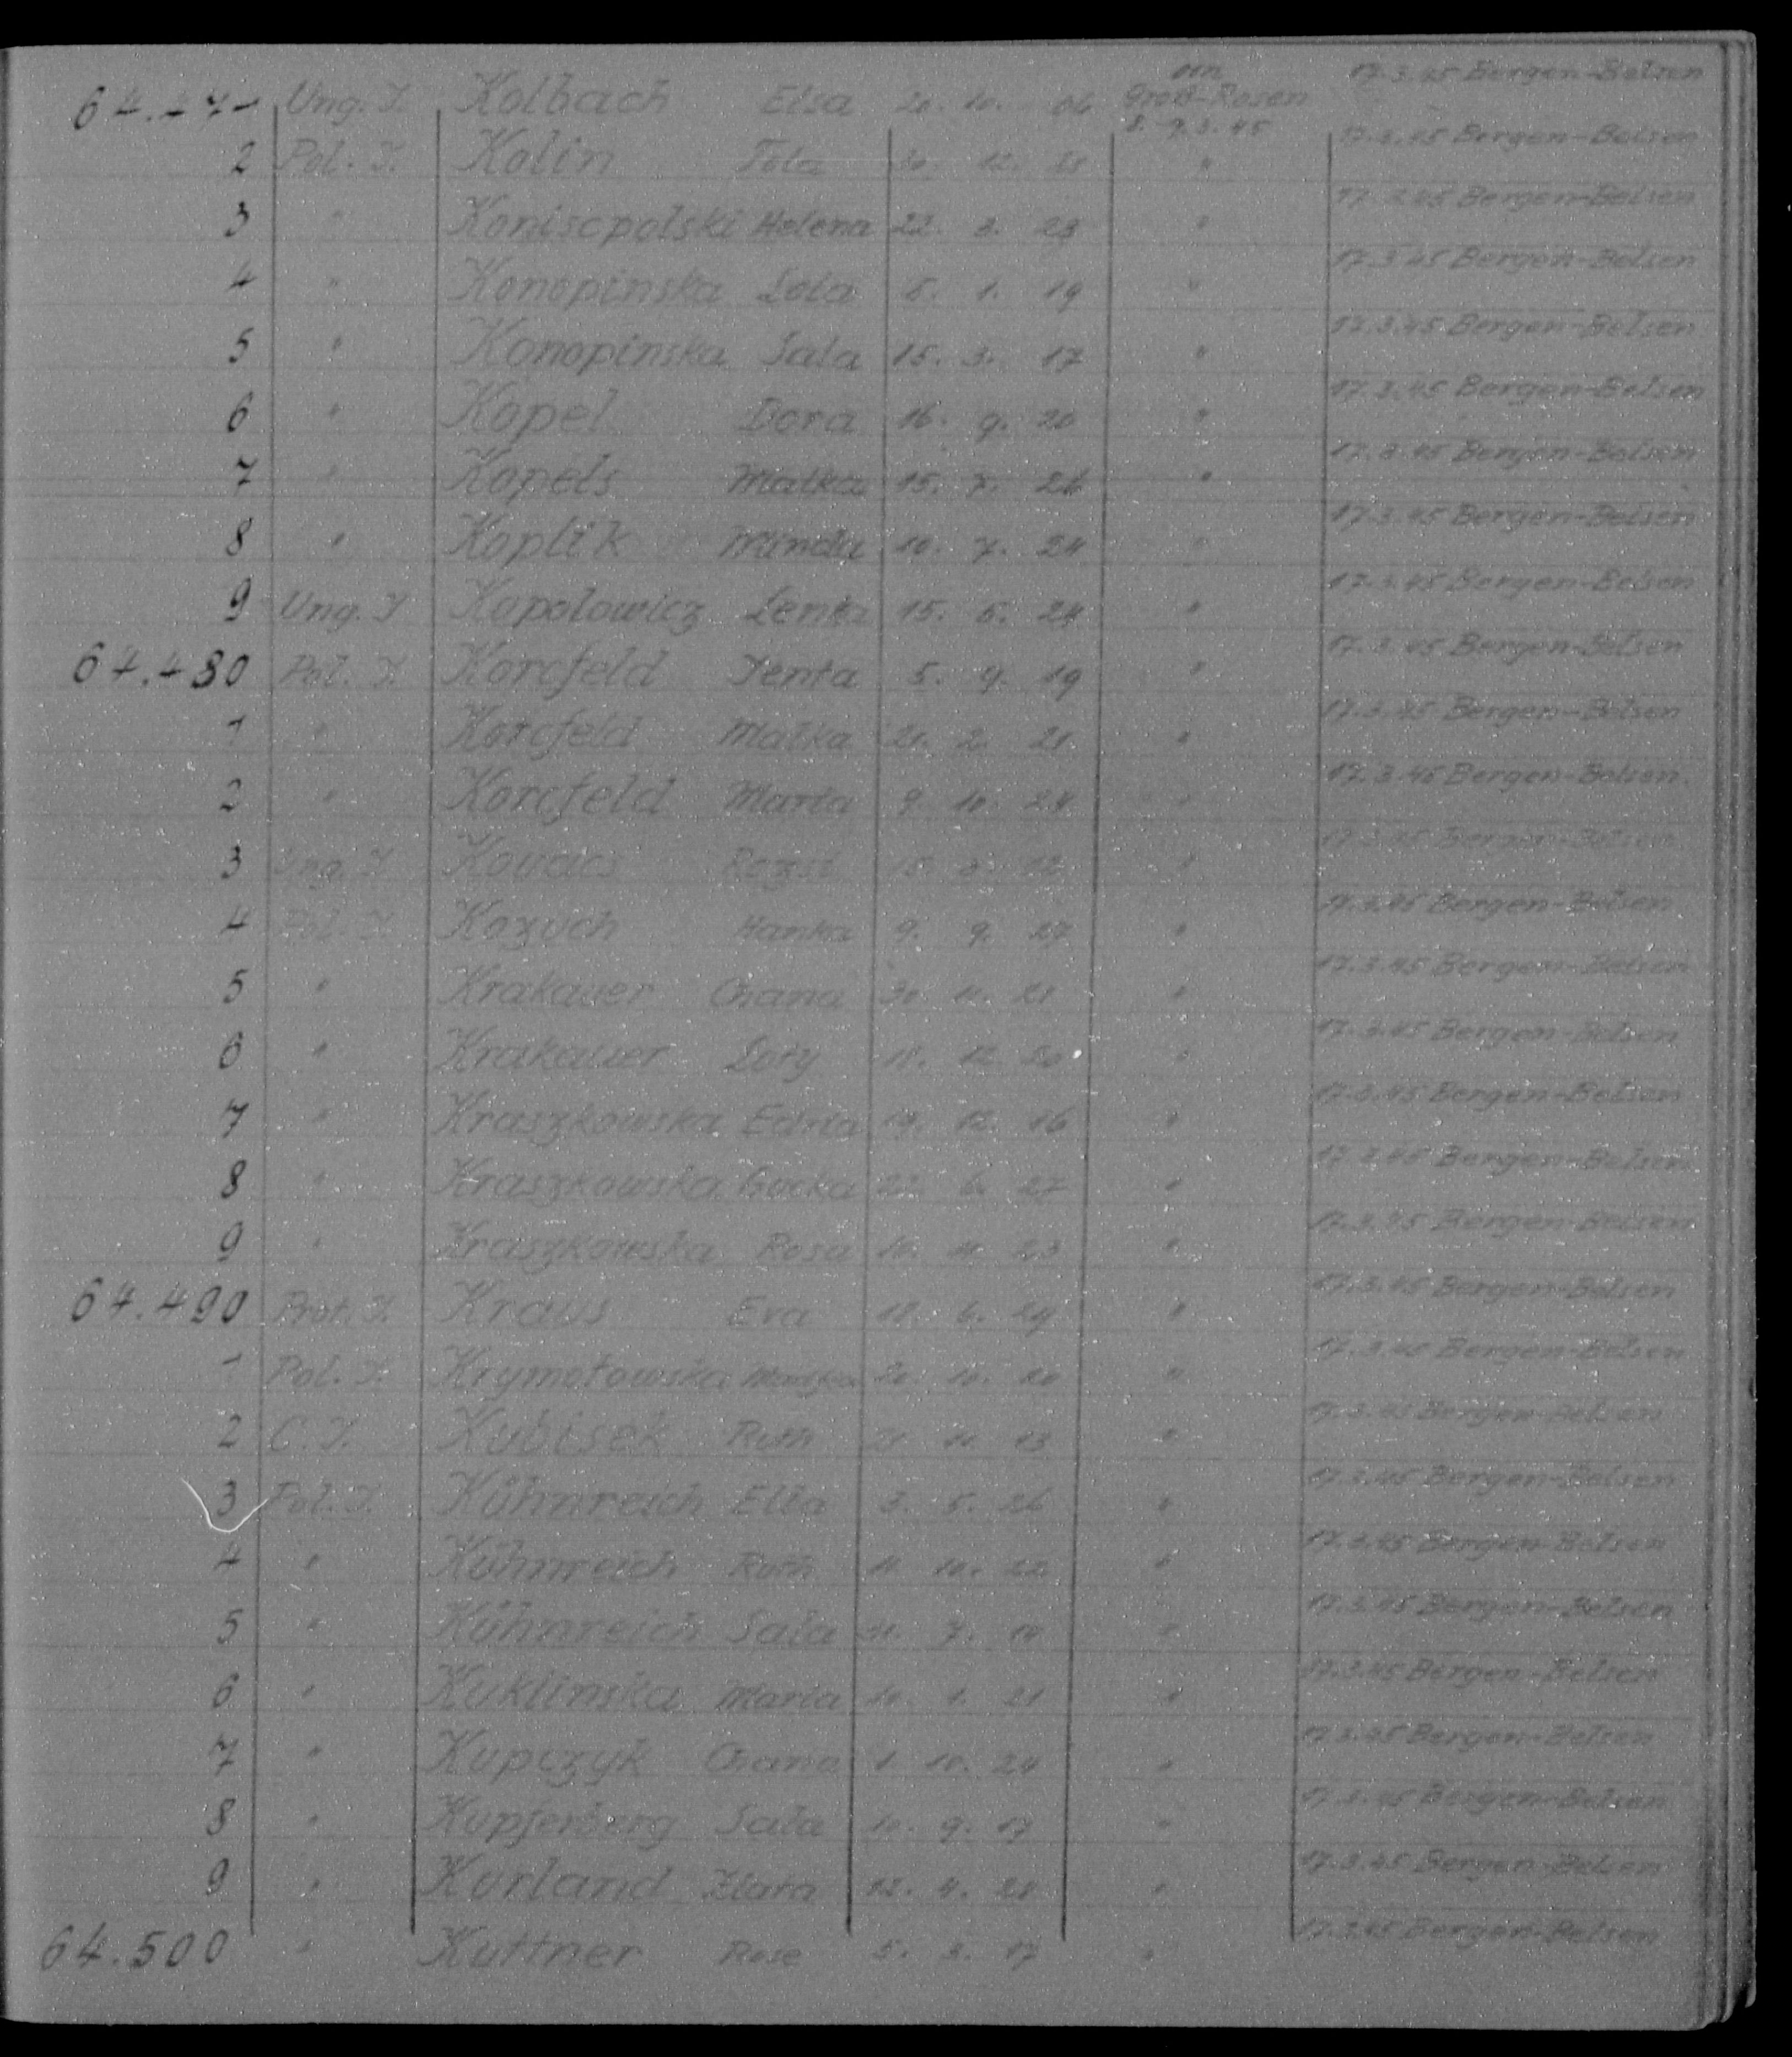 64.471 Ung. J. Kolbach Elsa 20. 10. 06 von Groß-Rosen 8.-9.3.45 17.3.45 Bergen-Belsen
2 Pol. J. Kolin Fela 30. 12. 17.3.45 Bergen-Belsen
3 " Koniscpolski Helena 22. 3. 23 " 17.3.45 Bergen-Belsen
4 " Konopinska Lola 5. 1. 19 " 17.3.45 Bergen-Belsen
5 " Konopinska Sala 15. 3. 17 " 17.3.45 Bergen-Belsen
6 " Kopel Dora 16. 9. 20 " 17.3.45 Bergen-Belsen
7 " Kopels Malka 15. 7. 26 " 17.3.45 Bergen-Belsen
8 " Koplik Minda 10. 7. 24 " 17.3.45 Bergen-Belsen
9 Ung. J Kopolowicz Lenka 15. 5. 24 " 17.3.45 Bergen-Belsen
64.480 Pol. J. Korcfeld Jenta 5. 9. 19 " 17.3.45 Bergen-Belsen
1 " Korcfeld Malka 21. 2. 21 " 17.3.45 Bergen-Belsen
2 " Korcfeld Maria 9. 10. 24 " 17.3.45 Bergen-Belsen
3 Ung. J. Kovacs Rezsi 15. 3. 12 " 17.3.45 Bergen-Belsen
4 Pol. J. Kozuch Hanka 9. 9. 27 " 17.3.45 Bergen-Belsen
5 " Krakauer Chana 30. 11. 21 " 17.3.45 Bergen-Belsen
6 " Krakauer Lory 18. 12. 20 " 17.3.45 Bergen-Belsen
7 " Kraszkowska Edzia 19. 12. 16 " 17.3.45 Bergen-Belsen
8 " Kraszkowska Gucka 22. 6. 27 " 17.3.45 Bergen-Belsen
9 " Kraszkowska Rosa 10. 11. 23 " 17.3.45 Bergen-Belsen
64.490 Prot. J. Kraus Eva 18. 6. 29 " 17.3.45 Bergen-Belsen
1 Pol. J. Krymotowska 20. 10. 20 " 17.3.45 Bergen-Belsen
2 C. J. Kubisek Ruth 10. 13 " 17.3.45 Bergen-Belsen
3 Pol. J. Kühnreich Ella 3. 5. 26 " 17.3.45 Bergen-Belsen
4 " Kühnreich Ruth 11. 10. 22 " 17.3.45 Bergen-Belsen
5 " Kühnreich Sala 7. 19 " 17.3.45 Bergen-Belsen
6 " Kuklinska Maria 10. 1. 21 " 17.3.45 Bergen-Belsen
7 " Kupczyk Chana 1. 10. 24 " 17.3.45 Bergen-Belsen
8 " Kupferberg Sala 10. 9. 17 " 17.3.45 Bergen-Belsen
9 " Kurland Zlata 12. 4. 21 " 17.3.45 Bergen-Belsen
64.500 " Kuttner Rose 5. 17 " 17.3.45 Bergen-Belsen